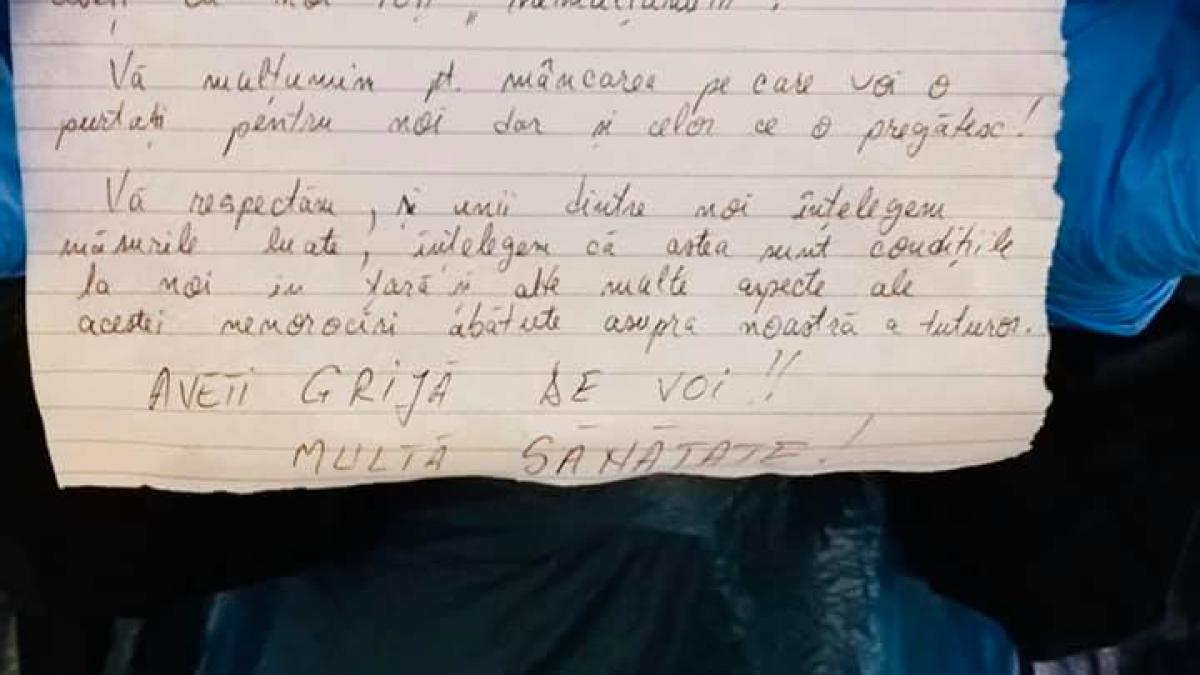 noi toți „nemulțumim".
Vă mulțumim pt. mâncarea pe care voi o
purtați pentru noi dar și celor ce o pregătesc!
Vă respectăm, și unii dintre noi înțelegem
măsurile luate, înțelegem că astea sunt condițiile
la noi in țară și alte multe aspecte ale
acestei nenorociri abătute asupra noastră a tuturor.
AVEȚI GRIJĂ DE VOI!!
MULTĂ SĂNĂTATE!